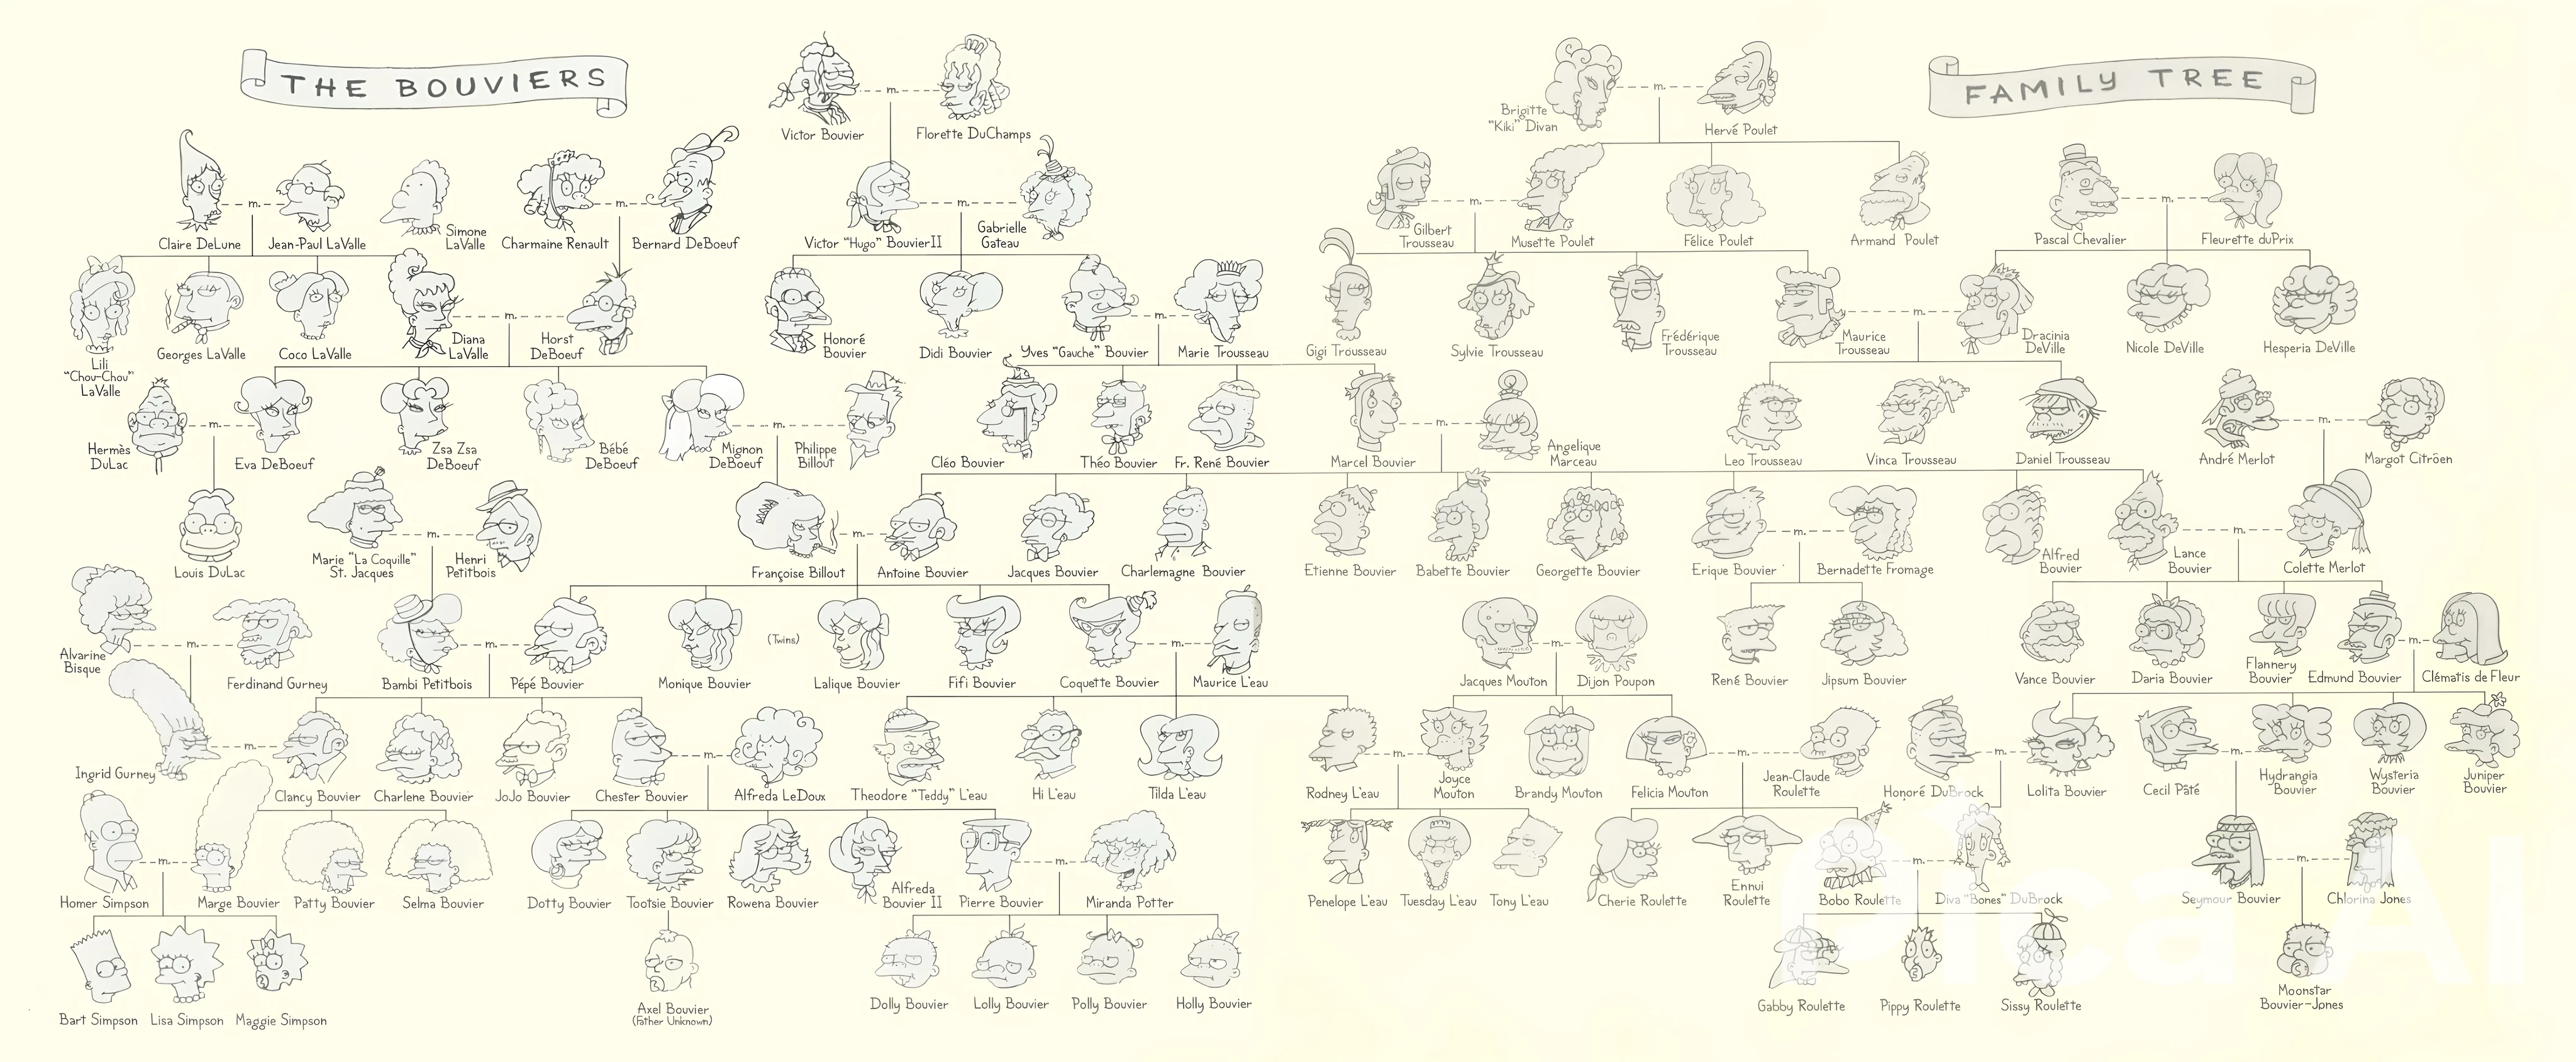 THE BOUVIERS
FAMILY TREE
m.
Victor Bouvier
Florette DuChamps
Brigitte
"Kiki" Divan
m.
Hervé Poulet
m.
Claire DeLune
Jean-Paul LaValle
Simone
LaValle
m.
Charmaine Renault
Bernard DeBoeuf
m.
Victor "Hugo" Bouvier II
Gabrielle
Gateau
m.
Gilbert
Trousseau
Musette Poulet
Félice Poulet
Armand Poulet
m.
Pascal Chevalier
Fleurette duPrix
Lili
"Chou-Chou"
LaValle
Georges LaValle
Coco LaValle
m.
Diana
LaValle
Horst
DeBoeuf
Honoré
Bouvier
Didi Bouvier
m.
Yves "Gauche" Bouvier
Marie Trousseau
Gigi Trousseau
Sylvie Trousseau
Frédérique
Trousseau
m.
Maurice
Trousseau
Dracinia
DeVille
Nicole DeVille
Hesperia DeVille
m.
Hermès
DuLac
Eva DeBoeuf
Zsa Zsa
DeBoeuf
Bébé
DeBoeuf
m.
Mignon
DeBoeuf
Philippe
Billout
Cléo Bouvier
Théo Bouvier
Fr. René Bouvier
m.
Marcel Bouvier
Angelique
Marceau
Leo Trousseau
Vinca Trousseau
Daniel Trousseau
m.
André Merlot
Margot Citröen
Louis DuLac
m.
Marie "La Coquille"
St. Jacques
Henri
Petitbois
m.
Françoise Billout
Antoine Bouvier
Jacques Bouvier
Charlemagne Bouvier
Etienne Bouvier
Babette Bouvier
Georgette Bouvier
m.
Erique Bouvier
Bernadette Fromage
Alfred
Bouvier
m.
Lance
Bouvier
Colette Merlot
m.
Alvarine
Bisque
Ferdinand Gurney
m.
Bambi Petitbois
Pépé Bouvier
Monique Bouvier
(Twins)
Lalique Bouvier
Fifi Bouvier
m.
Coquette Bouvier
Maurice L'eau
m.
Jacques Mouton
Dijon Poupon
René Bouvier
Jipsum Bouvier
Vance Bouvier
Daria Bouvier
Flannery
Bouvier
m.
Edmund Bouvier
Clématis de Fleur
m.
Ingrid Gurney
Clancy Bouvier
Charlene Bouvier
JoJo Bouvier
m.
Chester Bouvier
Alfreda LeDoux
Theodore "Teddy" L'eau
Hi L'eau
Tilda L'eau
m.
Rodney L'eau
Joyce
Mouton
Brandy Mouton
m.
Felicia Mouton
Jean-Claude
Roulette
m.
Honoré DuBrock
Lolita Bouvier
m.
Cecil Pâté
Hydrangia
Bouvier
Wysteria
Bouvier
Juniper
Bouvier
m.
Homer Simpson
Marge Bouvier
Patty Bouvier
Selma Bouvier
Dotty Bouvier
Tootsie Bouvier
Rowena Bouvier
Alfreda
Bouvier II
m.
Pierre Bouvier
Miranda Potter
Penelope L'eau
Tuesday L'eau
Tony L'eau
Cherie Roulette
Ennui
Roulette
m.
Bobo Roulette
Diva "Bones" DuBrock
m.
Seymour Bouvier
Chlorina Jones
Bart Simpson
Lisa Simpson
Maggie Simpson
Axel Bouvier
(Father Unknown)
Dolly Bouvier
Lolly Bouvier
Polly Bouvier
Holly Bouvier
Gabby Roulette
Pippy Roulette
Sissy Roulette
Moonstar
Bouvier-Jones